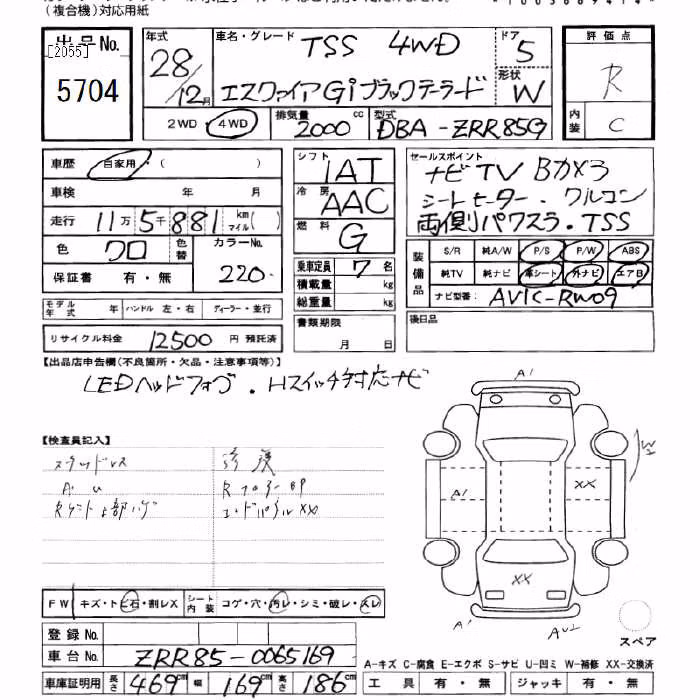 (複合機)対応用紙
出品No.
[2055]
5704
年式
28/12月
車名・グレード
TSS 4WD
エスクァイア Gi ブラックテーラード
ドア
5
形状
W
2WD・4WD
排気量
2000 cc
型式
DBA-ZRR85G
評価点
R
内装
C
車歴 自家用・(  )
車検 年 月
走行 11万5千881 km マイル( )
色 クロ 色替 カラーNo. 220
保証書 有・無
モデル年式 年 ハンドル 左・右 ディーラー・並行
リサイクル料金 12500 円 預託済
シフト 1AT
冷房 AAC
燃料 G
乗車定員 7 名
積載量 kg
総重量 kg
書類期限
月 日
セールスポイント
ナビ TV Bカメラ
シートヒーター・クルコン
両側パワスラ・TSS
装備品
S/R 純A/W P/S P/W ABS
純TV 純ナビ 革シート 外ナビ エアB
ナビ型番: AVIC-RW09
後日品
【出品店申告欄(不良箇所・欠品・注意事項等)】
LEDヘッドフォグ・Hスイッチ対応ナビ
【検査員記入】
スタッドレス
A・U
Rゲート上部ハゲ
修復
Rフロアー BP
エンドパネル XX
FW キズ・トビ石・割レX
シート内装 コゲ・穴・汚レ・シミ・破レ・スレ
登録No.
車台No. ZRR85-0065169
車庫証明用 長さ 469cm 幅 169cm 高さ 186cm
A1
W2
A1
XX
XX
A1
AU2
スペア
A-キズ C-腐食 E-エクボ S-サビ U-凹ミ W-補修 XX-交換済
工具 有・無 ジャッキ 有・無